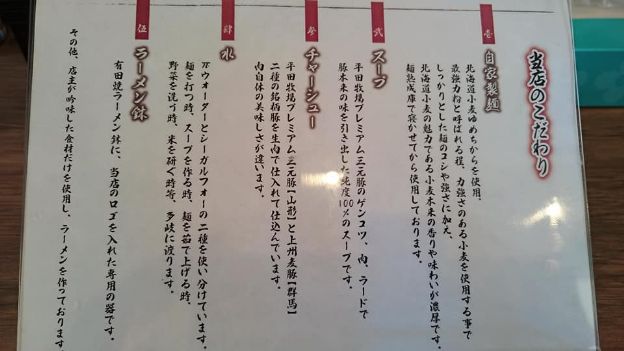 当店のこだわり
壱
自家製麺
北海道小麦ゆめちからを使用、
最強力粉と呼ばれる程、力強さのある小麦を使用する事で
しっかりとした麺のコシや強さに加え、
北海道小麦の魅力である小麦本来の香りや味わいが濃厚です。
麺熟成庫で寝かせてから使用しております。
弐
スープ
平田牧場プレミアム三元豚のゲンコツ、肉、ラードで
豚本来の味を引き出した純度100%のスープです。
参
チャーシュー
平田牧場プレミアム三元豚【山形】と上州麦豚【群馬】
二種の銘柄豚を生肉で仕入れて仕込んでいます。
肉自体の美味しさが違います。
肆
水
πウォーターとシーガルフォーの二種を使い分けています。
麺を打つ時、スープを作る時、麺を茹で上げる時、
野菜を洗う時、米を研ぐ時等、多岐に渡ります。
伍
ラーメン鉢
有田焼ラーメン鉢に、当店のロゴを入れた専用の器です。
その他、店主が吟味した食材だけを使用し、ラーメンを作っております